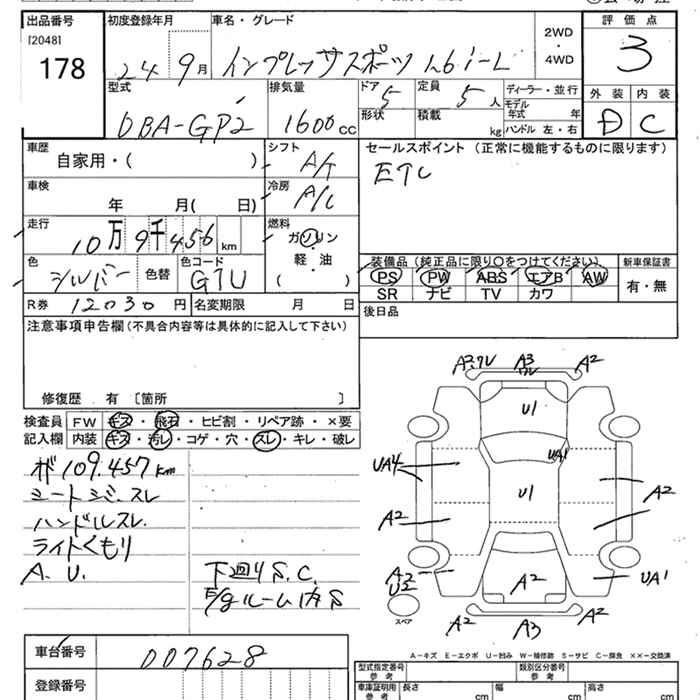 出品番号 初度登録年月 車名・グレード 2WD・4WD 評価点
[2048]
178
24 9月 インプレッサスポーツ 1.6i-L 3
型式 排気量 ドア 5 定員 5人 ディーラー・並行 外装 内装
形状 積載 kg モデル年式 年
ハンドル 左・右
DBA-GP2 1600cc D C
車歴 シフト セールスポイント (正常に機能するものに限ります)
自家用・( ) A/T ETC
車検 冷房
年 月( 日) A/C
走行 燃料
10万9千456km ガソリン
軽・油
( )
色 色コード 装備品 (純正品に限り○をつけてください) 新車保証書
シルバー 色替 G1U PS PW ABS エアB AW 有・無
SR ナビ TV カワ
R券 12030円 名変期限 月 日
後日品
注意事項申告欄(不具合内容等は具体的に記入して下さい)
修復歴 有 〔箇所 〕
検査員 FW キズ・飛石・ヒビ割・リペア跡・×要
記入欄 内装 キズ・汚レ・コゲ・穴・スレ・キレ・破レ
109.457km
シートシミ.スレ
ハンドルスレ.
ライトくもり
A.U.
下回りS.C.
E/gルーム内S
A2 A3 A2
U1
UA4 UA1
U1
A2 A2
A2 A2 UA1
スペア
A2 A3 A2
A-キズ E-エクボ U-凹み W-補修跡 S-サビ C-腐食 XX-交換済
車台番号 007628
登録番号
型式指定番号 参考 類別区分番号 参考
車庫証明用 参考 長さ cm 幅 cm 高さ cm